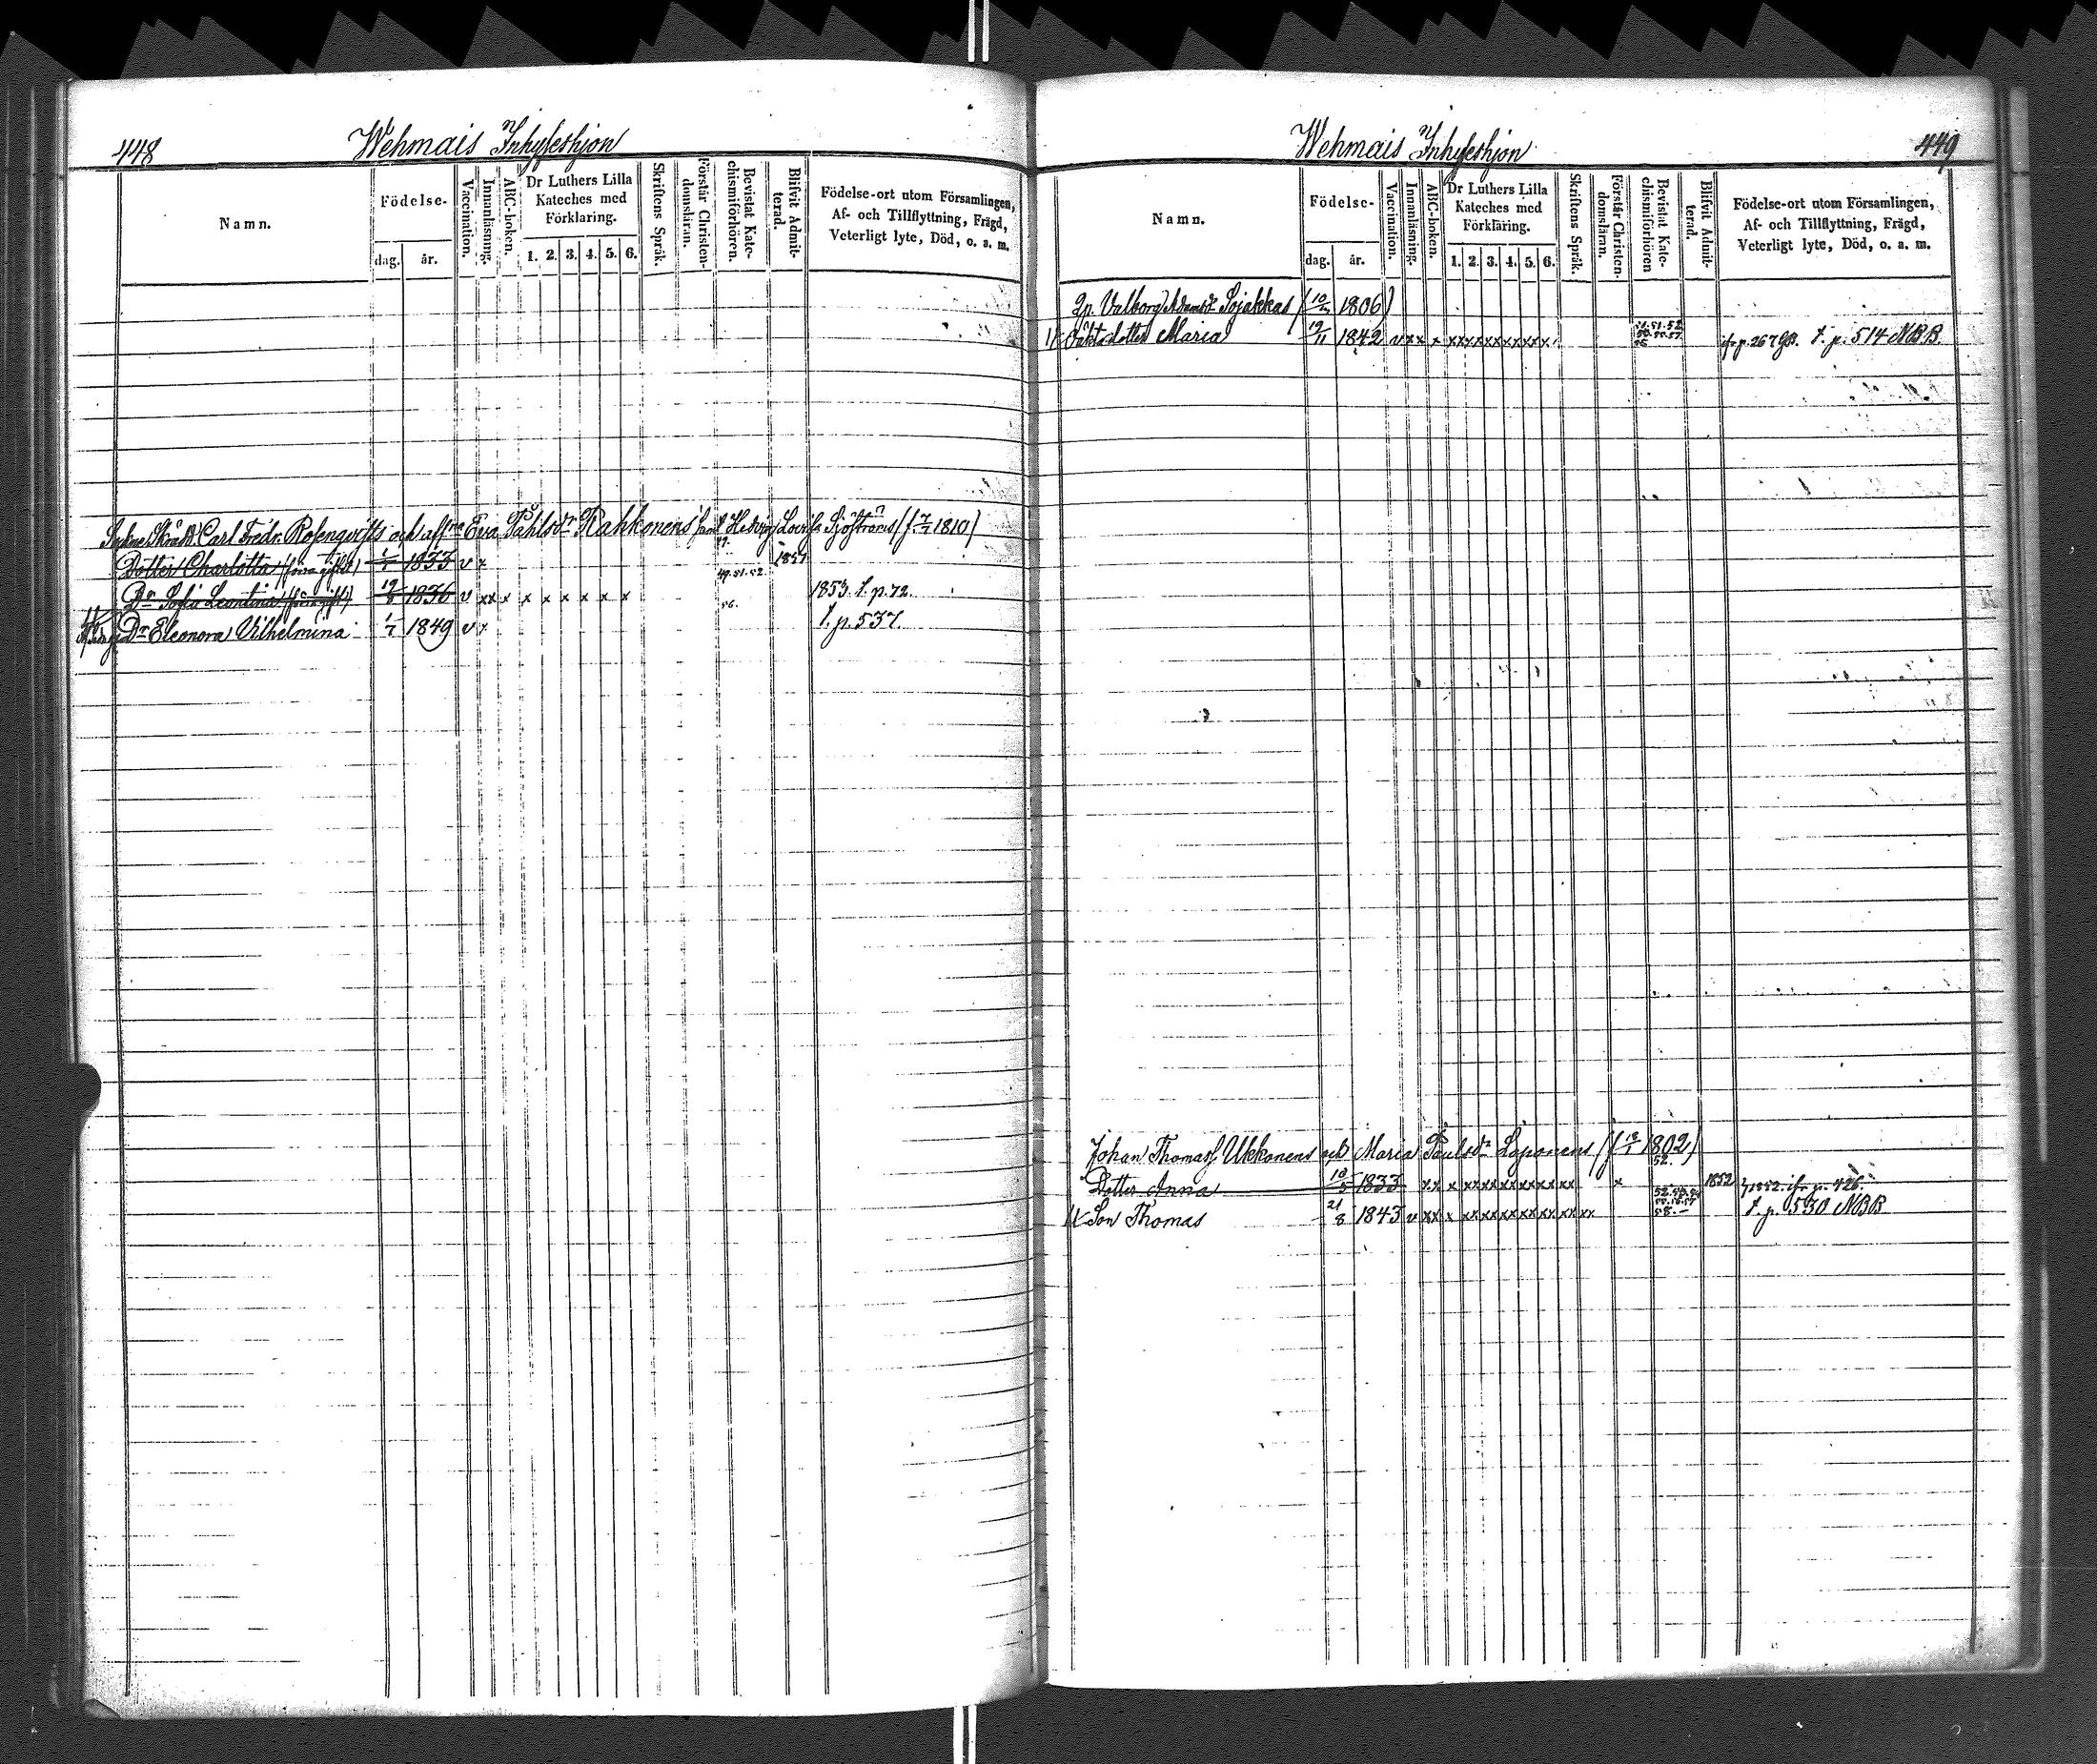 448
Wehmais Inhyseshjon
Namn.
Födelse-
dag.
år.
Vaccination.
Innanläsning.
ABC-boken.
Dr Luthers Lilla
Kateches med
Förklaring.
1. 2. 3. 4. 5. 6.
Skriftens Språk.
Förstår Christen-
domsläran.
Bevistat Kate-
chismiförhören.
Blifvit Admit-
terad.
Födelse-ort utom Församlingen,
Af- och Tillflyttning, Frägd,
Veterligt lyte, Död, o. a. m.
Carl Fredr. Rosenqvists och Eva Påhlsdr Rahkonens samt Hedvig Lovisa Sjöströms (f. 1810)
Dotter Charlotta 1833 v x 1851
49.51.52.
Dr Sofia Leontina 1836 v xx x x x x x x x 1853. f. p. 72.
56.
Dr Eleonora Vilhelmina 1/7 1849 v x f. p. 537.
449
Wehmais Inhyseshjon
Namn.
Födelse-
dag.
år.
Vaccination.
Innanläsning.
ABC-boken.
Dr Luthers Lilla
Kateches med
Förklaring.
1. 2. 3. 4. 5. 6.
Skriftens Språk.
Förstår Christen-
domsläran.
Bevistat Kate-
chismiförhören
Blifvit Admit-
terad.
Födelse-ort utom Församlingen,
Af- och Tillflyttning, Frägd,
Veterligt lyte, Död, o. a. m.
Valborg Adamsdr Sojakkas 1806)
Oäkta dotter Maria 19/11 1842 v xx x xx xx xx xx xx x f. p. 514 NBB.
Johan Thomass. Ukkonens och Maria Paulsdr Loponens (f. 1802)
52.
Dotter Anna 1833 xx x xx xx xx xx xx xx x 1852
Son Thomas 21/8 1843 v xx x xx xx xx xx xx xx xx 58. f. p. 530 NBB